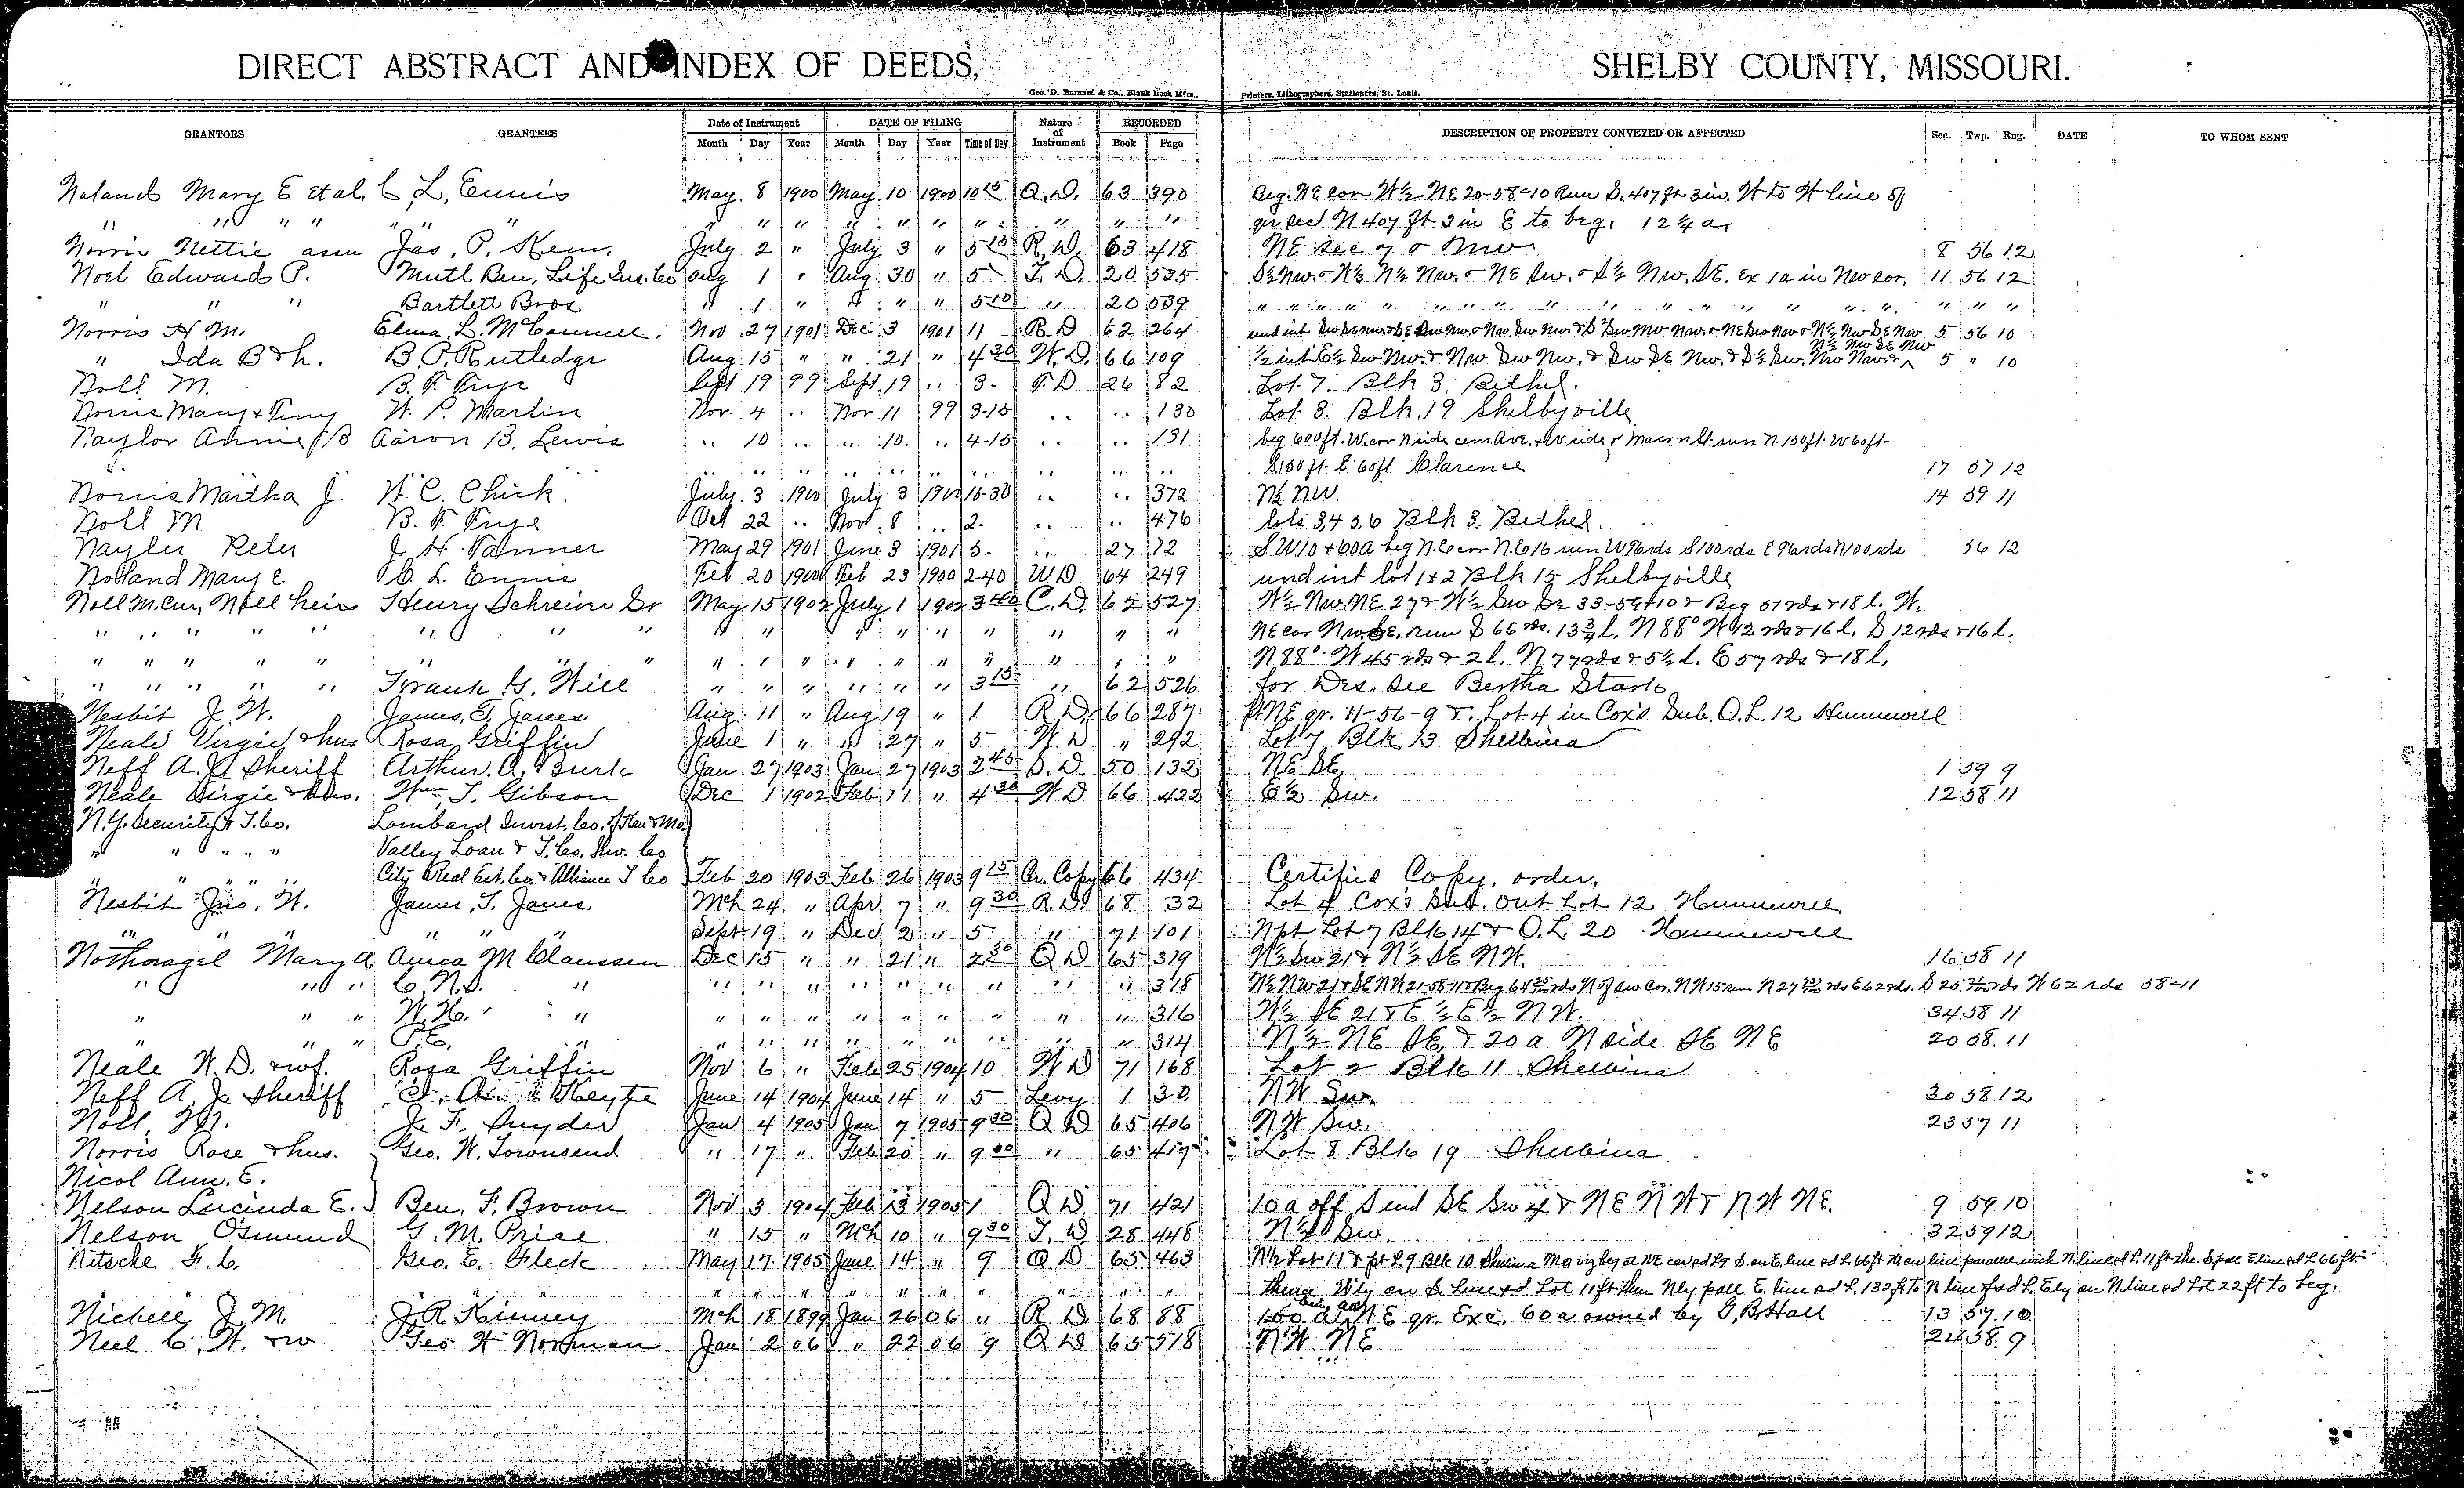 DIRECT ABSTRACT AND INDEX OF DEEDS, SHELBY COUNTY, MISSOURI.
Geo. D. Barnard & Co., Blank Book Mfrs., Printers, Lithographers, Stationers, St. Louis.
GRANTORS GRANTEES Date of Instrument DATE OF FILING Nature of Instrument RECORDED DESCRIPTION OF PROPERTY CONVEYED OR AFFECTED Sec. Twp. Rng. DATE TO WHOM SENT
Month Day Year Month Day Year Time of Day Book Page
Noland Mary E et al. C. L. Ennis May 8 1900 May 10 1900 10 15 Q. D. 63 390 Beg. NE cor W½ NE 20-58-10 Run S. 407 ft 3 in. W to W line of
" " " " " " " " " " " " " " " " " qr sec N 407 ft 3 in E to beg. 12¼ a
Norris Nettie Jas. P. Kem. July 2 " July 3 " 5 15 R. D. 63 418 NE Sec 7 & NW 8 56 12
Noel Edward P. Mutl Ben. Life Ins. Co Aug 1 " Aug 30 " 5 T. D. 20 535 S½ NW. & N½ N½ NW. & NE SW. & S½ NW. SE. Ex 1a in NW cor. 11 56 12
" " " Bartlett Bros " 1 " " " " 5 10 " 20 539 " " " " " " " " " " " " " " "
Norris H M. Elma L. McConnell. Nov 27 1901 Dec 3 1901 11 R D 62 264 und int 5 56 10
" Ida B & h. B. P. Rutledge Aug 15 " " 21 " 4 30 W. D. 66 109 ½ int E½ SW NW. & NW SW NW. & SW SE NW. & S½ SW. NW NW. & N½ NW SE NW 5 " 10
Noll M. B. F. Frye Sept 19 99 Sept 19 " 3- T. D 26 82 Lot 7. Blk 3. Bethel.
Norris Mary & Perry W. P. Martin Nov. 4 " Nov 11 99 3-15 " " 130 Lot 8. Blk. 19 Shelbyville
Naylor Annie J B Aaron B. Lewis " 10 " " 10. " 4-15 " " 131 beg 600 ft. W. cor N side cem Ave. & W side of Macon St. run N. 150 ft. W 60 ft-
" " " " " " " " " S 150 ft. E 60 ft Clarence 17 57 12
Norris Martha J. W. C. Chick. July 3 1900 July 3 1900 10-30 " " 372 N½ NW 14 59 11
Noll M B. F. Frye Oct 22 " Nov 8 " 2- " " 476 lots 3 4 5 6 Blk 3. Bethel.
Nayler Peter J. H. Tanner May 29 1901 June 3 1901 5- " 27 72 S W 10 & 60a beg N.E cor N.E 16 run W 96 rds S 100 rds E 96 rds N 100 rds 56 12
Nolland Mary E. C. L. Ennis Feb 20 1900 Feb 23 1900 2-40 W D 64 249 und int lot 1 & 2 Blk 15 Shelbyville
Noll M. Cur, Noll heirs Henry Schreim Sr May 15 1902 July 1 1902 3 40 C. D. 62 527 W½ NW. NE 27 & W½ SW SE 33-59-10 & Beg 51 rds & 18 l. W.
" " " " " " " " " " " " " " " " " NE cor NW SE. run S 66 rds. 13¾ l. N 88° W 12 rds & 16 l. S 12 rds & 16 l.
" " " " " " " " " " " " " " " " " N 88° W 45 rds & 2 l. N 77 rds & 5½ l. E 57 rds & 18 l.
" " " " " Frank G. Will " " " " " " 3 15 " 62 526 for Des. See Bertha Stark
Nesbit J. W. James. T. Janes. Aug. 11 " Aug 19 " 1 R. D. 66 287 pt NE qr. 11-56-9 &. Lot 4 in Cox's Sub. O. L. 12 Hunnewell
Neale Virgie & hus Rosa Griffin June 1 " " 27 " 5 W D " 292 Lot 7 Blk 13 Shelbina
Neff A. J. Sheriff Arthur. A. Burk Jan 27 1903 Jan 27 1903 2 45 S. D. 50 132 NE SE. 1 59 9
Neale Virgie & hus. Wm T. Gibson Dec 1 1902 Feb 11 " 4 30 W D 66 422 E½ SW. 12 58 11
N. Y. Security & T. Co. Lombard Invest. Co. of Kan & Mo.
" " " " " Valley Loan & T. Co. Shr. Co
" " " " " City Real Est. Co. & Alliance T Co Feb 20 1903 Feb 26 1903 9 15 Cr. Copy 66 434 Certified Copy, order,
Nesbit Jno. W. James. T. Janes. Mch 24 " Apr 7 " 9 30 R. D. 68 32 Lot 4 Cox's Sub. Out Lot 12 Hunnewell
" " " " " " Sept 19 " Dec 2 " 5 " 71 101 N pt Lot 7 Blk 14 & O. L. 20 Hunnewell
Nothnagel Mary A Anna M Claussen Dec 15 " " 21 " 2 30 Q D 65 319 W½ SW 21 & N½ SE NW. 16 58 11
" " " C. N. D. " " " " " " " " " " 318
" " " W. H. " " " " " " " " " " 316 W½ SE 21 & E½ E½ NW. 34 58 11
" " P. E. " " " " " " " " " " 314 N½ NE SE. & 20 a N side SE NE 20 58. 11
Neale W. D. & wf. Rosa Griffin Nov 6 " Feb 25 1904 10 W D 71 168 Lot 2 Blk 11 Shelbina
Neff A. J. Sheriff Keyte June 14 1904 June 14 " 5 Levy 1 30 NW SW. 30 58 12
Noll, M. J. F. Snyder Jan 4 1905 Jan 7 1905 9 30 Q D 65 406 NW SW. 23 57 11
Norris Rose & hus. Geo. W. Townsend " 17 " Feb 20 " 9 00 " 65 419 Lot 8 Blk 19 Shelbina
Nicol Ann. E.
Nelson Lucinda E. Ben. F. Brown Nov 3 1904 Feb 13 1905 1 Q D 71 421 10 a off S end SE SW 4 & NE NW & NW NE. 9 59 10
Nelson Osmund G. M. Price " 15 " Mch 10 " 9 30 T. D 28 448 N½ SW. 32 59 12
Nitscke F. C. Geo. E. Fleck May 17 1905 June 14 " 9 Q D 65 463 N½ Lot 11 & pt L. 9 Blk 10 Shelbina Mo
" " " " " " " " " thence Wly on S. line sd Lot 11 ft then Nly pall E. line sd L. 132 ft to N line of sd L. Ely on N line sd Lot 22 ft to beg.
Nichell J. M. J. R. Kinney Mch 18 1899 Jan 26 06 " R D 68 88 160 a being all NE qr. Exc. 60 a owned by G. B. Hall 13 57 10
Neel C. W. & w Geo W Norman Jan 2 06 " 22 06 9 Q D 65 518 NW NE 24 58 9